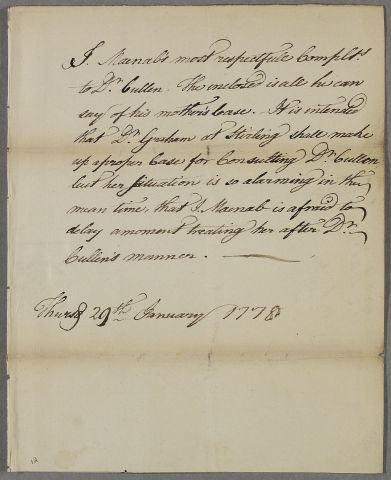 J. Macnab's most respectfull Complts.
to Dr. Cullen. The enclosed is all he can
say of his mother's Case. It is intended
that Dr. Graham at Stirling shall make
up a proper Case for Consulting Dr. Cullen
but her situation is so alarming in the
mean time, that J. Macnab is afraid to
delay a moment treating her after Dr.
Cullen's manner.
29th. January 1778
12